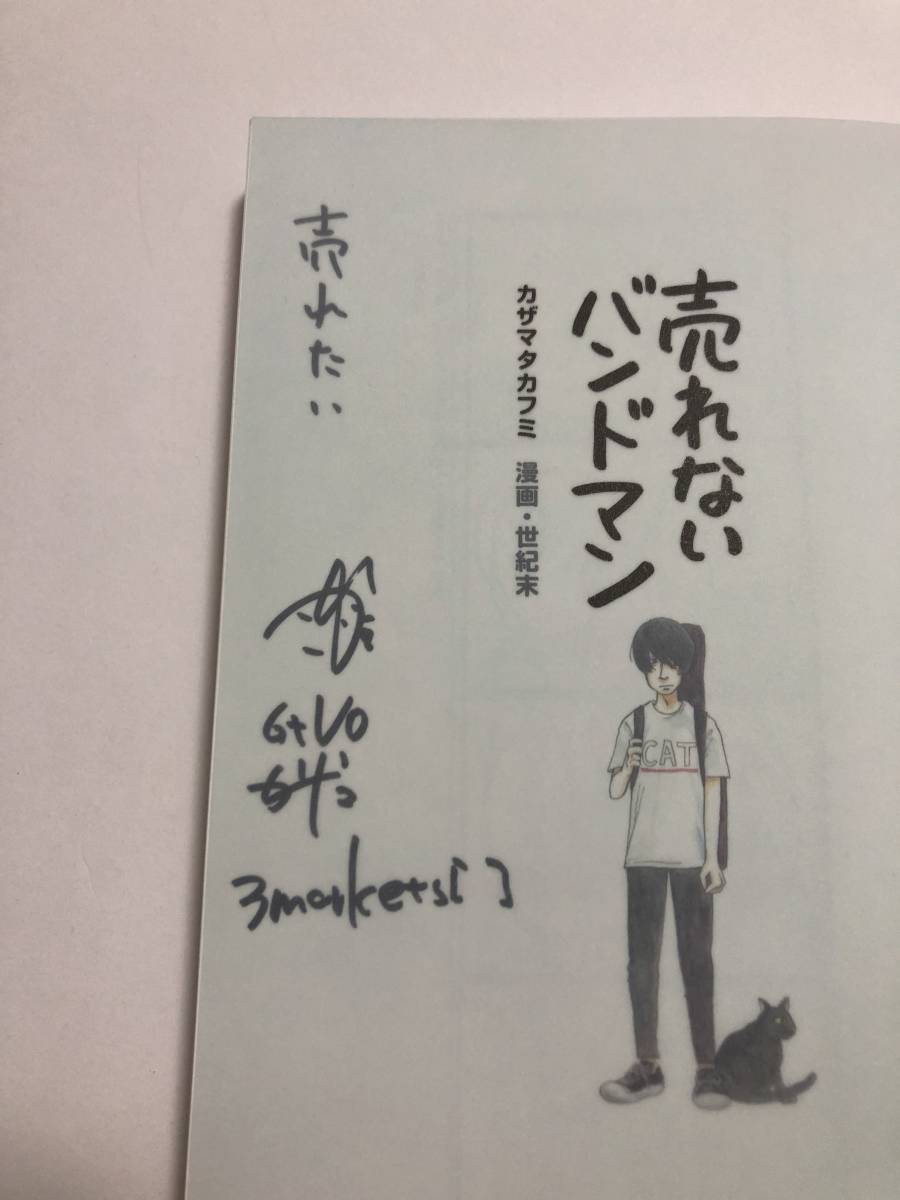 売れない
バンドマン
カザマタカフミ 漫画・世紀末
売れたい
Gt Vo
3markets[ ]
CAT